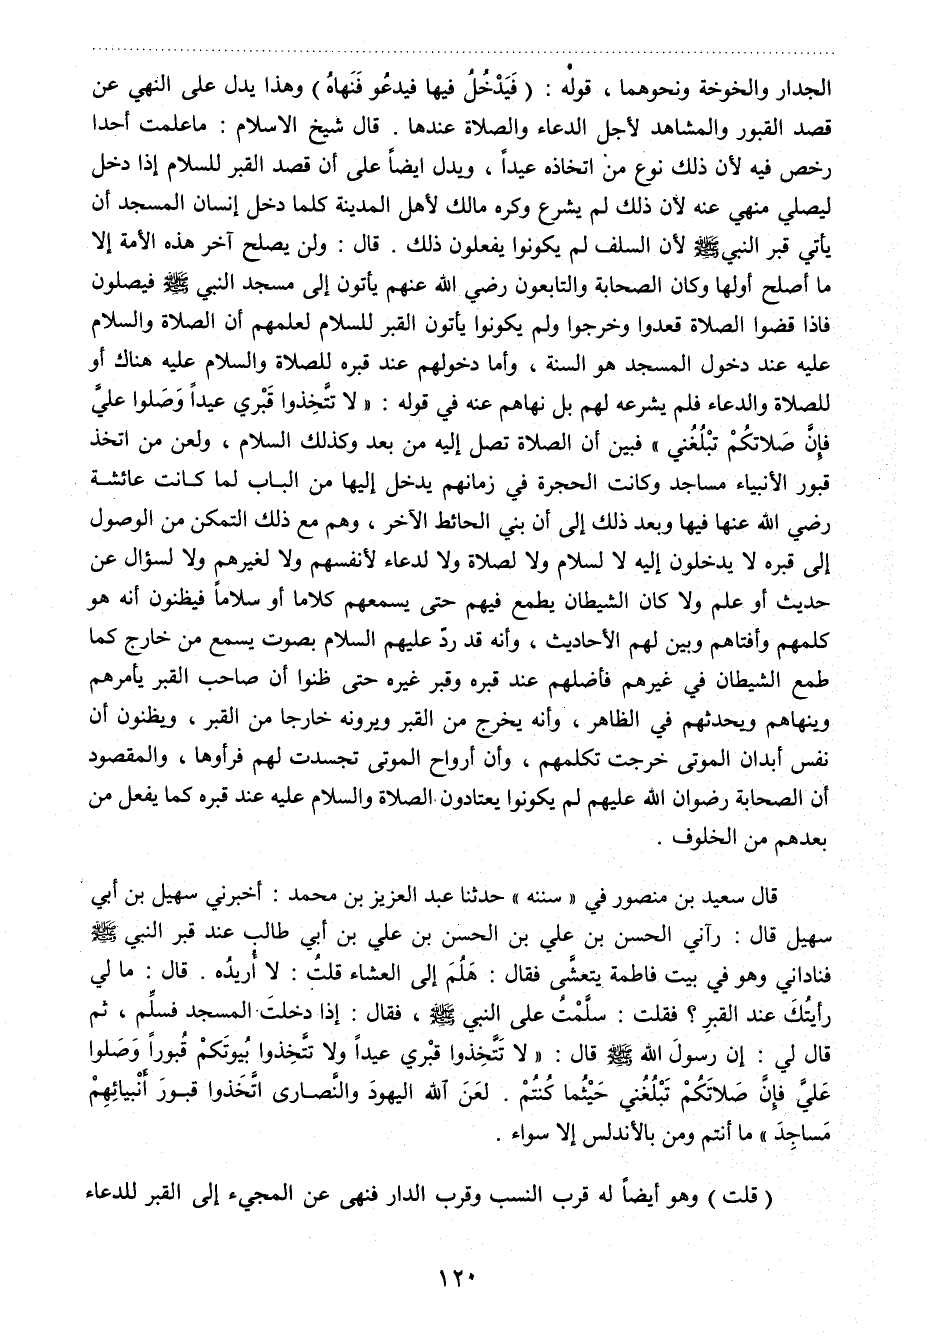 الجدار والخوخة ونحوهما ، قوله : ( فَيَدْخُلُ فيها فيدعُو فَنَهاهُ ) وهذا يدل على النهي عن
قصد القبور والمشاهد لأجل الدعاء والصلاة عندها . قال شيخ الاسلام : ماعلمت أحدا
رخص فيه لأن ذلك نوع من اتخاذه عيداً ، ويدل ايضاً على أن قصد القبر للسلام إذا دخل
ليصلي منهي عنه لأن ذلك لم يشرع وكره مالك لأهل المدينة كلما دخل إنسان المسجد أن
يأتي قبر النبي ﷺ لأن السلف لم يكونوا يفعلون ذلك . قال : ولن يصلح آخر هذه الأمة إلا
ما أصلح أولها وكان الصحابة والتابعون رضي الله عنهم يأتون إلى مسجد النبي ﷺ فيصلون
فاذا قضوا الصلاة قعدوا وخرجوا ولم يكونوا يأتون القبر للسلام لعلمهم أن الصلاة والسلام
عليه عند دخول المسجد هو السنة ، وأما دخولهم عند قبره للصلاة والسلام عليه هناك أو
للصلاة والدعاء فلم يشرعه لهم بل نهاهم عنه في قوله : « لا تتَّخِذوا قَبْري عيداً وَصَلوا عليَّ
فإنَّ صَلاتكُمْ تبْلُغُني » فبين أن الصلاة تصل إليه من بعد وكذلك السلام ، ولعن من اتخذ
قبور الأنبياء مساجد وكانت الحجرة في زمانهم يدخل إليها من الباب لما كانت عائشة
رضي الله عنها فيها وبعد ذلك إلى أن بني الحائط الآخر ، وهم مع ذلك التمكن من الوصول
إلى قبره لا يدخلون إليه لا لسلام ولا لصلاة ولا لدعاء لأنفسهم ولا لغيرهم ولا لسؤال عن
حديث أو علم ولا كان الشيطان يطمع فيهم حتى يسمعهم كلاما أو سلاماً فيظنون أنه هو
كلمهم وأفتاهم وبين لهم الأحاديث ، وأنه قد ردّ عليهم السلام بصوت يسمع من خارج كما
طمع الشيطان في غيرهم فأضلهم عند قبره وقبر غيره حتى ظنوا أن صاحب القبر يأمرهم
وينهاهم ويحدثهم في الظاهر ، وأنه يخرج من القبر ويرونه خارجا من القبر ، ويظنون أن
نفس أبدان الموتى خرجت تكلمهم ، وأن أرواح الموتى تجسدت لهم فرأوها ، والمقصود
أن الصحابة رضوان الله عليهم لم يكونوا يعتادون الصلاة والسلام عليه عند قبره كما يفعل من
بعدهم من الخلوف .
قال سعيد بن منصور في « سننه » حدثنا عبد العزيز بن محمد : أخبرني سهيل بن أبي
سهيل قال : رآني الحسن بن علي بن الحسن بن علي بن أبي طالب عند قبر النبي ﷺ
فناداني وهو في بيت فاطمة يتعشَّى فقال : هَلُمَ إلى العشاء قلتُ : لا أُريدُه . قال : ما لي
رأيتُكَ عند القبرِ ؟ فقلت : سلَّمْتُ على النبي ﷺ ، فقال : إذا دخلتَ المسجد فسلِّم ، ثم
قال لي : إن رسولَ الله ﷺ قال : « لا تَتَّخِذوا قبْري عيداً ولا تتَّخِذوا بُيوتَكمْ قُبوراً وَصَلوا
عَليَّ فإنَّ صَلاتَكُمْ تَبْلُغُني حَيْثُما كُنتُمْ . لعَنَ آلله اليهودَ والنَّصارى اتَّخَذوا قبورَ أَنْبيائِهِمْ
مَساجِدَ » ما أنتم ومن بالأندلس إلا سواء .
( قلت ) وهو أيضاً له قرب النسب وقرب الدار فنهى عن المجيء إلى القبر للدعاء
١٢٠